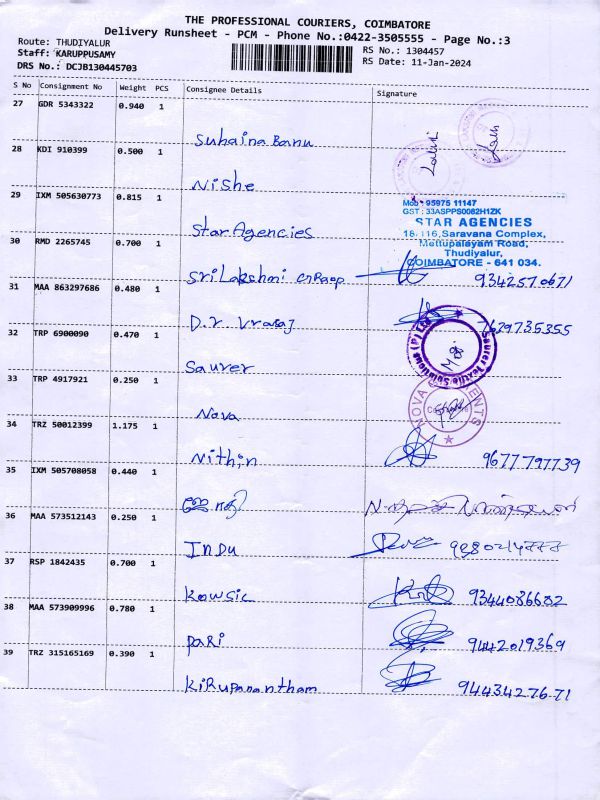 THE PROFESSIONAL COURIERS, COIMBATORE
Delivery Runsheet - PCM - Phone No.:0422-3505555 - Page No.:3
Route: THUDIYALUR
Staff: KARUPPUSAMY
DRS No.: DCJB130445703
RS No.: 1304457
RS Date: 11-Jan-2024
S No Consignment No Weight PCS Consignee Details Signature
27 GDR 5343322 0.940 1
Suhaina Banu
28 KDI 910399 0.500 1
Nishe
29 IXM 505630773 0.815 1
Star Agencies
Mob : 95975 11147
GST : 33ASPPS0082H1ZK
STAR AGENCIES
18-116,Saravana Complex,
Mettupalayam Road,
Thudiyalur,
COIMBATORE - 641 034.
30 RMD 2265745 0.700 1
Sri Lakshmi 9342570671
31 MAA 863297686 0.480 1
D.r 7629735355
32 TRP 6900090 0.470 1
Saurer
Saurer Textile Solutions (P) Ltd
33 TRP 4917921 0.250 1
Nava
NOVA
34 TRZ 50012399 1.175 1
Nithin 9677797739
35 IXM 505708058 0.440 1
36 MAA 573512143 0.250 1
Indu
37 RSP 1842435 0.700 1
Kowsic 9344086682
38 MAA 573909996 0.780 1
Pari 9442019369
39 TRZ 315165169 0.390 1
Kirupanantham 9443427671